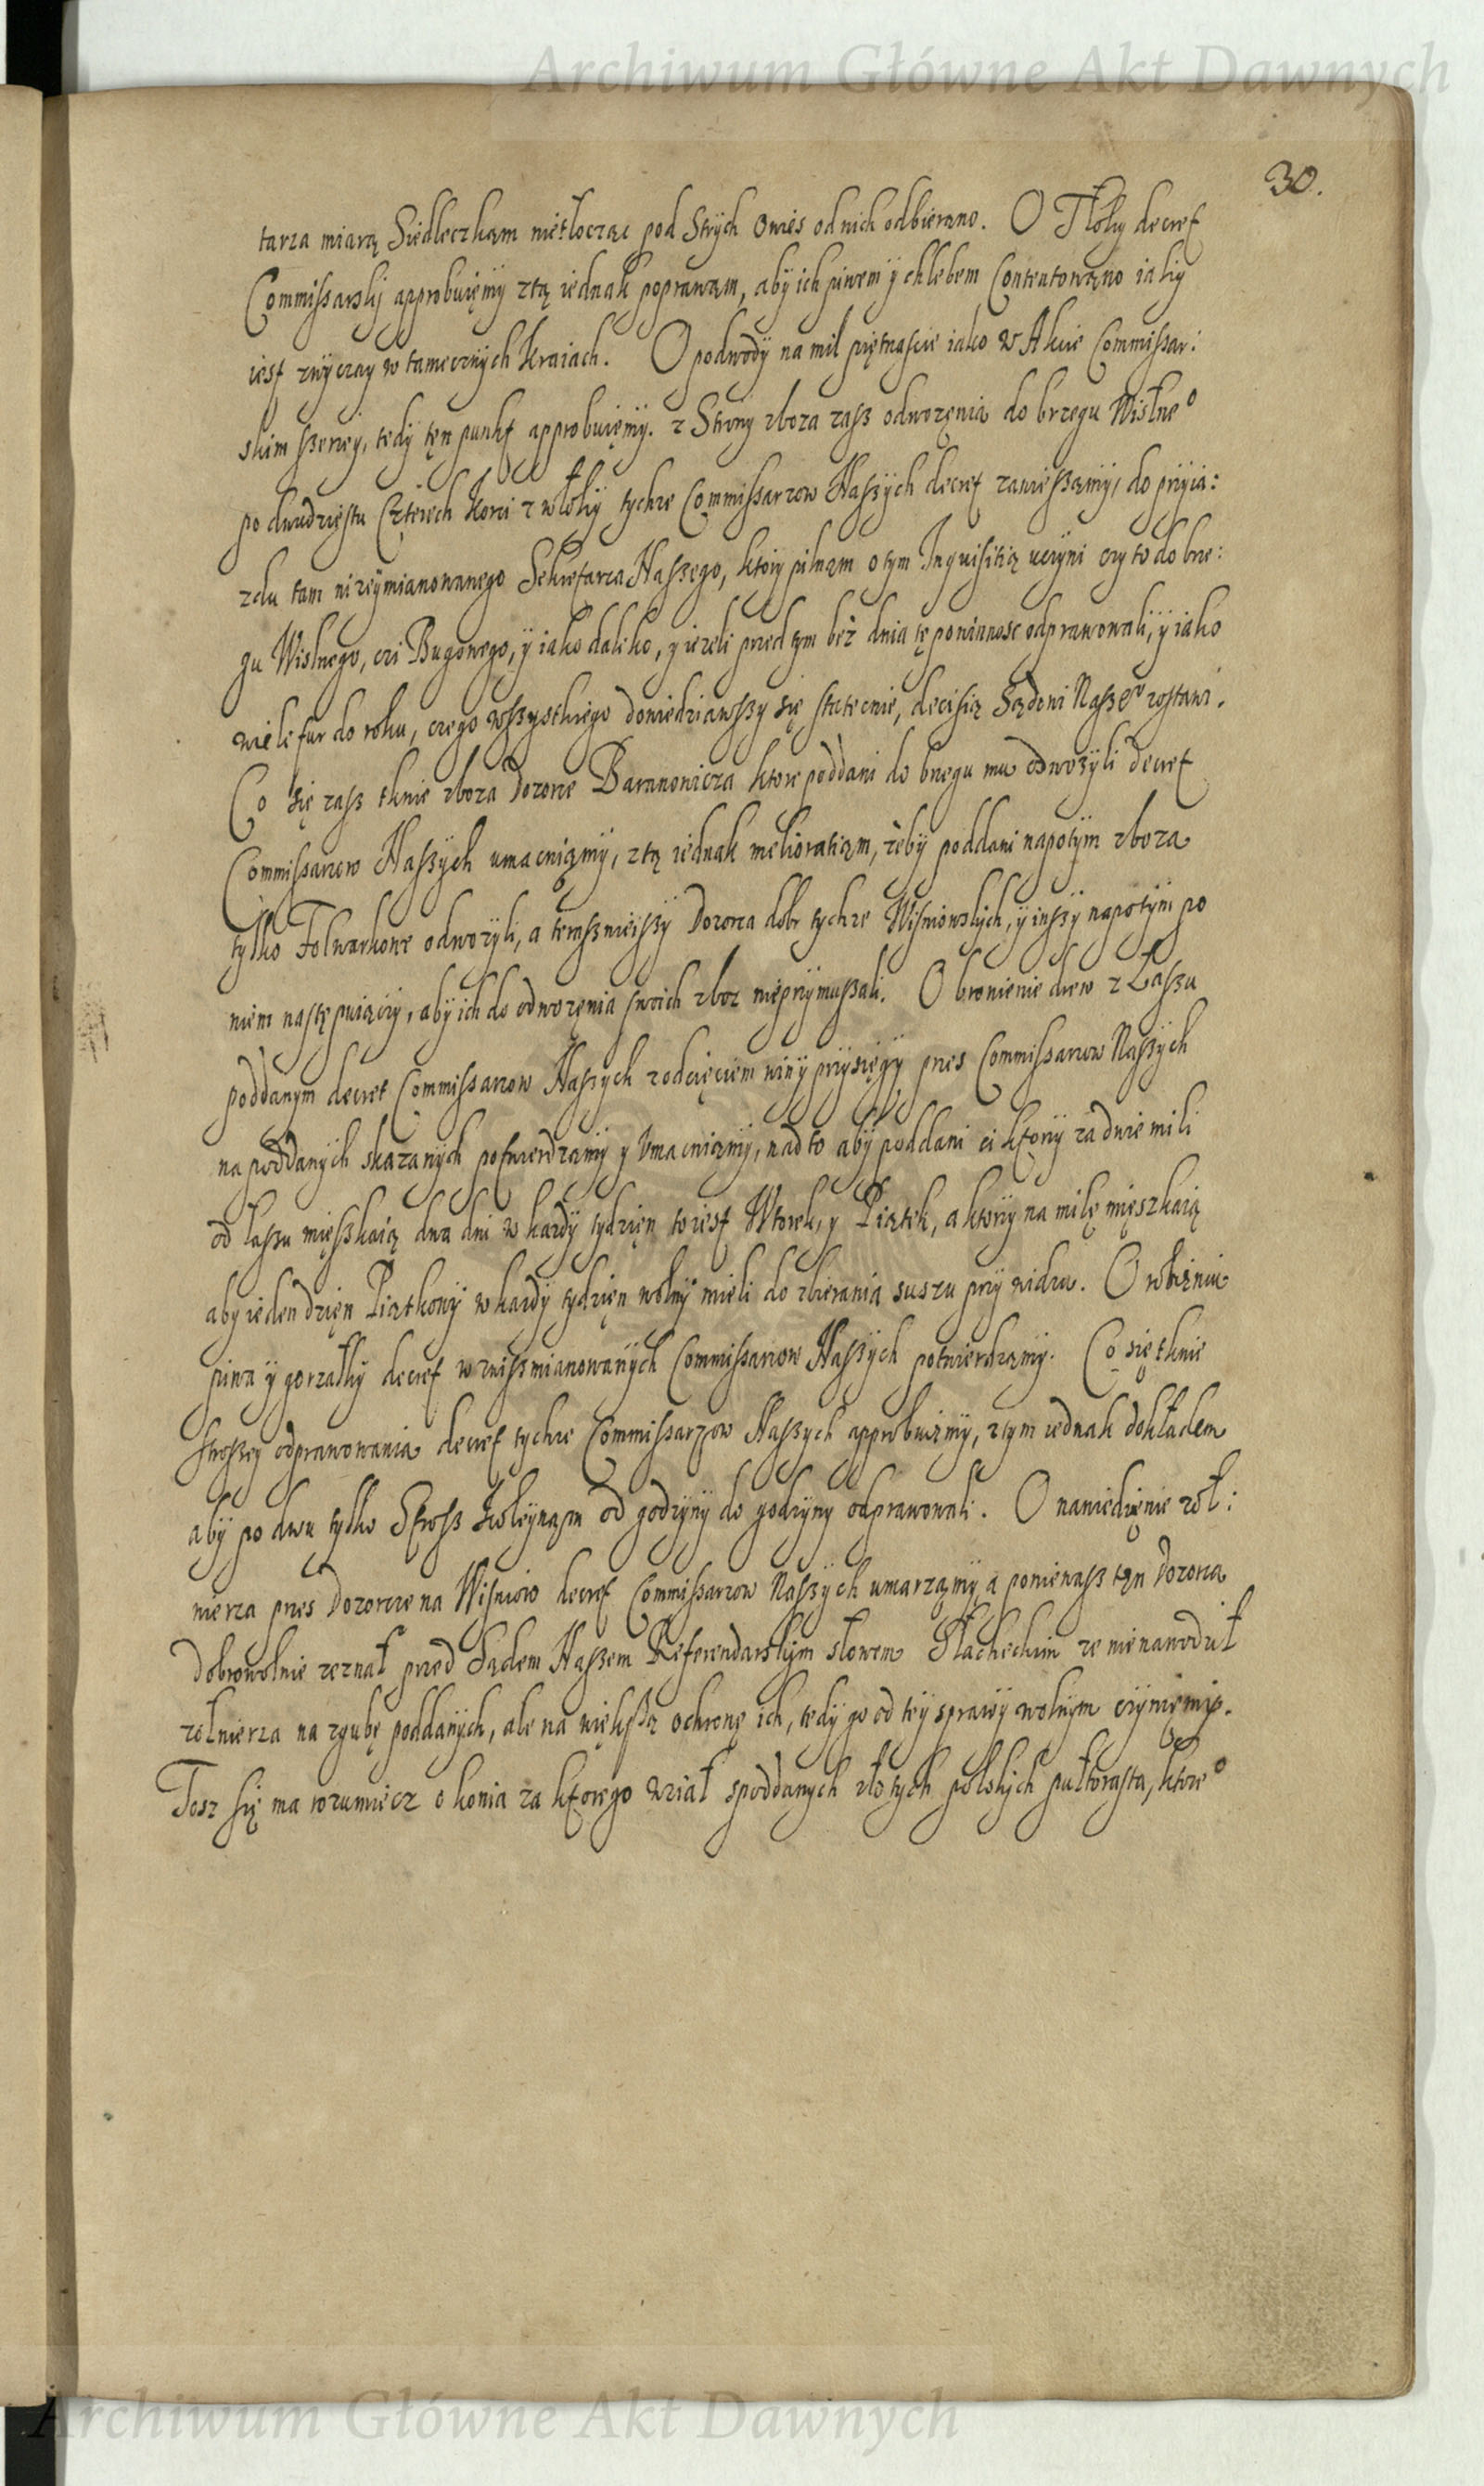 Archiwum Główne Akt Dawnych
30.
tarza miarą Siedleczkąm nietłocząc pod Strych Owies od nich odbierano. O Tłoky decret
Commissarskj approbuięmy ztą iednak poprawąm, aby ich piwem ÿ chlebem Contentowąno iakiy
iest zwyczay w tamecznych kraiach. O podwody na mil piętnascie iako w Akcie Commissar:
skim szerzej, tedÿ tęn punkt approbuięmÿ. z Strony zboza zasz odwozęnia do brzegu Wislne°
po dwudziestu Czterech korci z włokÿ tychze Commissarzow Naszÿch decret zawieszamÿ, do przyia:
zdu tam nizeÿmianowanego Sekretarza Naszego, ktory pilnąm otym Inquisitią uczyni czy to do brze:
gu Wislnego, czi Bugowego, ÿ iako daleko, y iezeli przed tym bez dnia tę powinnosc odprawowali, ÿ iako
wiele fur do roku, czego wszystkiego dowiedziawszy się statecnie, decisią Sądowi Nasze° zostawi.
Co się zasz tknie zboza Dozorce Baranowicza ktore poddani do brzegu mu odwozÿli decret
Commissarzow Naszÿch umacniąmÿ, ztą iednak melioratiąm, zebÿ poddani napotÿm zboza
tylko Folwarkowe odwozÿli, a terasznieiszÿ Dozorca dobr tychze Wisniowskich, ÿ inszÿ napotÿm po
niem następuiącÿ, abÿ ich do odwozęnia swoich zboz nieprzymuszali. O bronienie drew z Lassu
poddanym decret Commissarzow Naszych zodcięciem winÿ przysięgÿ przes Commissarzow Naszÿch
na poddanÿch skazanÿch potwierdzamÿ y Umacniąmÿ, nad to abÿ poddani ci ktorÿ za dwie mili
od lassu mięszkaią dwa dni w kazdÿ tydzięn to iest Wtorek, y Piątek, a ktorÿ na milę mięszkaią
aby ieden dzięn Piątkowÿ w kazdÿ tydzięn wolnÿ mieli do zbierania suszu przÿ widzu. O robieniu
piwa ÿ gorzałkÿ decret w zwisz mianowanÿch Commissarzow Naszÿch potwierdząmÿ. Co się tknie
strozey odprawowania decret tychze Commissarzow Naszych approbuięmÿ, z tym iednak dokładem
abÿ po dwu tylko Strosz koleÿnąm od godzyny do godzyny odprawowali. O nawiedzięnie zoł:
nierza przes Dozorcze na Wisniow decret Commissarzow Naszÿch umarząmÿ a poniewasz tęn Dozorca
dobrowolnie zeznał przed Sądem Naszem Referendarskÿm słowem Slacheckim ze nienawodził
zołnierza na zgubę poddanÿch, ale na większą ochronę ich, tedÿ go od teÿ sprawÿ wolnym czÿnięmÿ.
Tosz się ma rozumiecz o konia za ktorego wział spoddanych złotÿch polskich pułtorasta, ktore°
Archiwum Główne Akt Dawnych